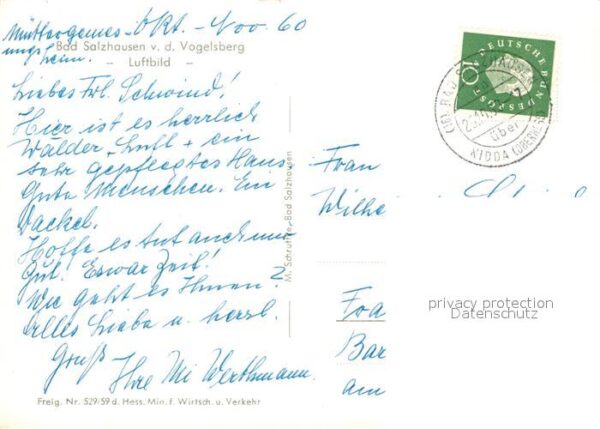 Müttergenes- Okt.- Nov 60
ungsheim.
Bad Salzhausen v. d. Vogelsberg
- Luftbild -
Liebes Frl. Schwind!
Hier ist es herrlich
Wälder - Luft + ein
sehr gepflegtes Haus
Gute Menschen. Ein
Dackel.
Hoffe es tut auch mir
Gut! Es war Zeit!
Wie geht es Ihnen?
Alles Liebe u. herzl.
Gruß
Ihre Mi Werthmann.
Freig. Nr. 529/59 d. Hess. Min. f. Wirtsch. u. Verkehr
M. Schruttke, Bad Salzhausen
DEUTSCHE BUNDESPOST
10
(16) BAD SALZHAUSEN
über
NIDDA (OBERHESS)
Frau
Wilhe
privacy protection
Datenschutz
Bar
am